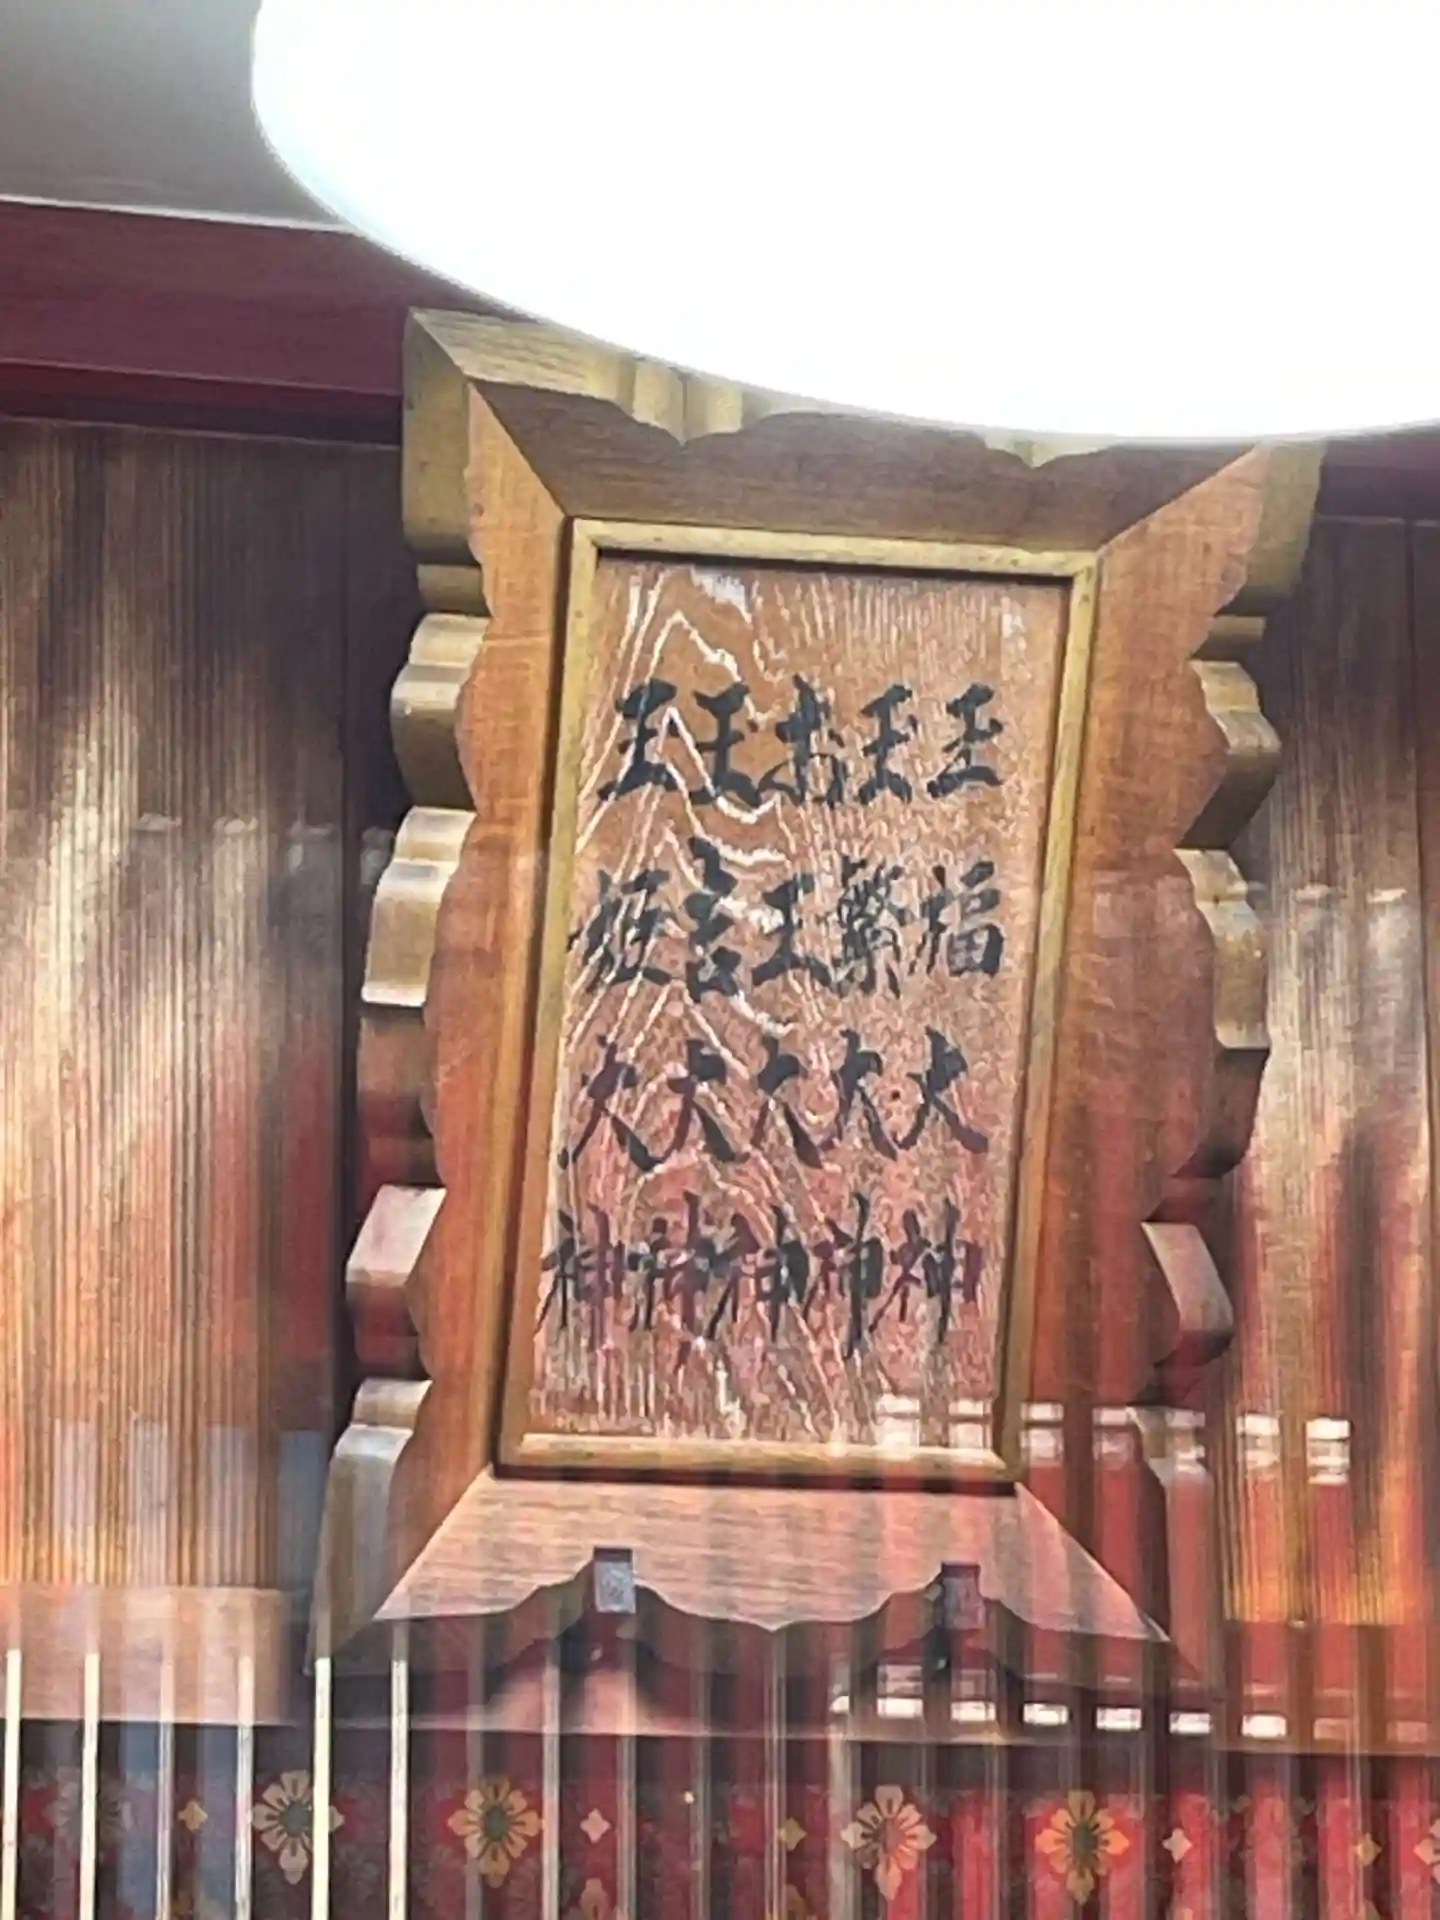 玉福大神
玉繁大神
お玉大神
玉吉大神
玉姫大神